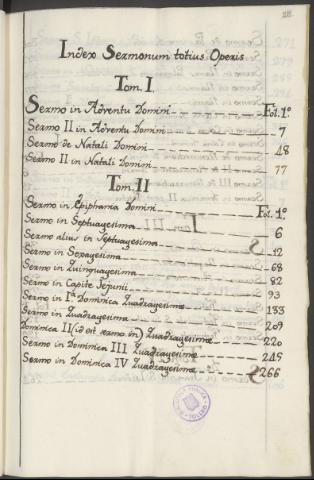 Index Sermonum totius Operis
Tom. I.
Sermo in Adventu Domini Fol. 1º
Sermo II in Adventu Domini 7
Sermo de Natali Domini 48
Sermo II in Natali Domini 77
Tom. II
Sermo in Epiphania Domini Fol. 1º
Sermo in Septuagesima 6
Sermo alius in Septuagesima 12
Sermo in Sexagesima 68
Sermo in Quinquagesima 82
Sermo in Capite Jejunii 93
Sermo in Iª Dominica Quadragesimæ 133
Sermo in Quadragesima 209
Dominica II (id est sermo in) Quadragesimæ 220
Sermo in Dominica III Quadragesimæ 245
Sermo in Dominica IV Quadragesimæ 266
TOLEDO